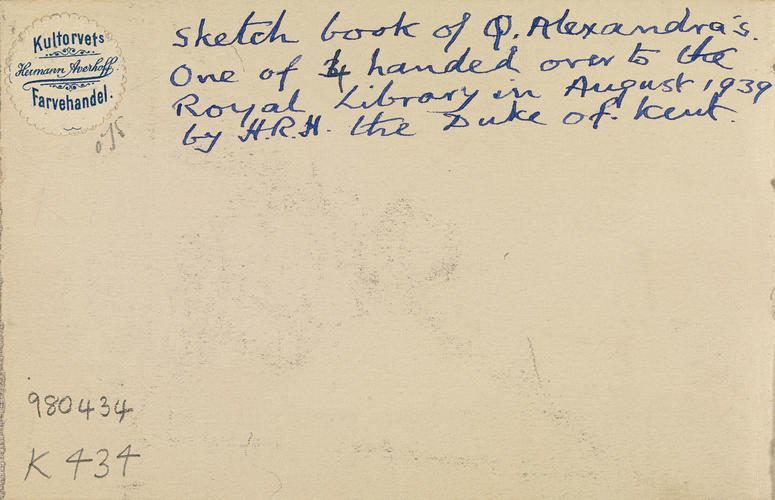 Kultorvets
Hermann Averhoff
Farvehandel.
Sketch book of Q. Alexandra's.
One of 4 handed over to the
Royal Library in August 1939
by H.R.H. the Duke of Kent.
980434
K 434